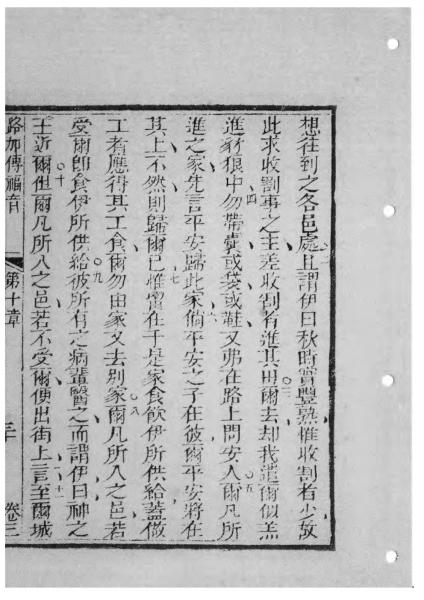 想往到之各邑處且謂伊曰秋時實豐熟惟收割者少故
此求收割事之主差收割者進其田爾去却我遣爾似羔
進豺狼中勿帶囊或袋或鞋又弗在路上問安人爾凡所
進之家先言曰平安歸此家倘平安之子在彼爾平安將在
其上不然則歸爾己惟當在于是家食飲伊所供給蓋做
工者應得其工食爾勿由家又去別家爾凡所入之邑若
受爾即食伊所供給彼所有之病輩醫之而謂伊曰神之
王近爾但爾凡所入之邑若不受爾便出街上言至爾城
路加傳福音 第十章 三十 卷三